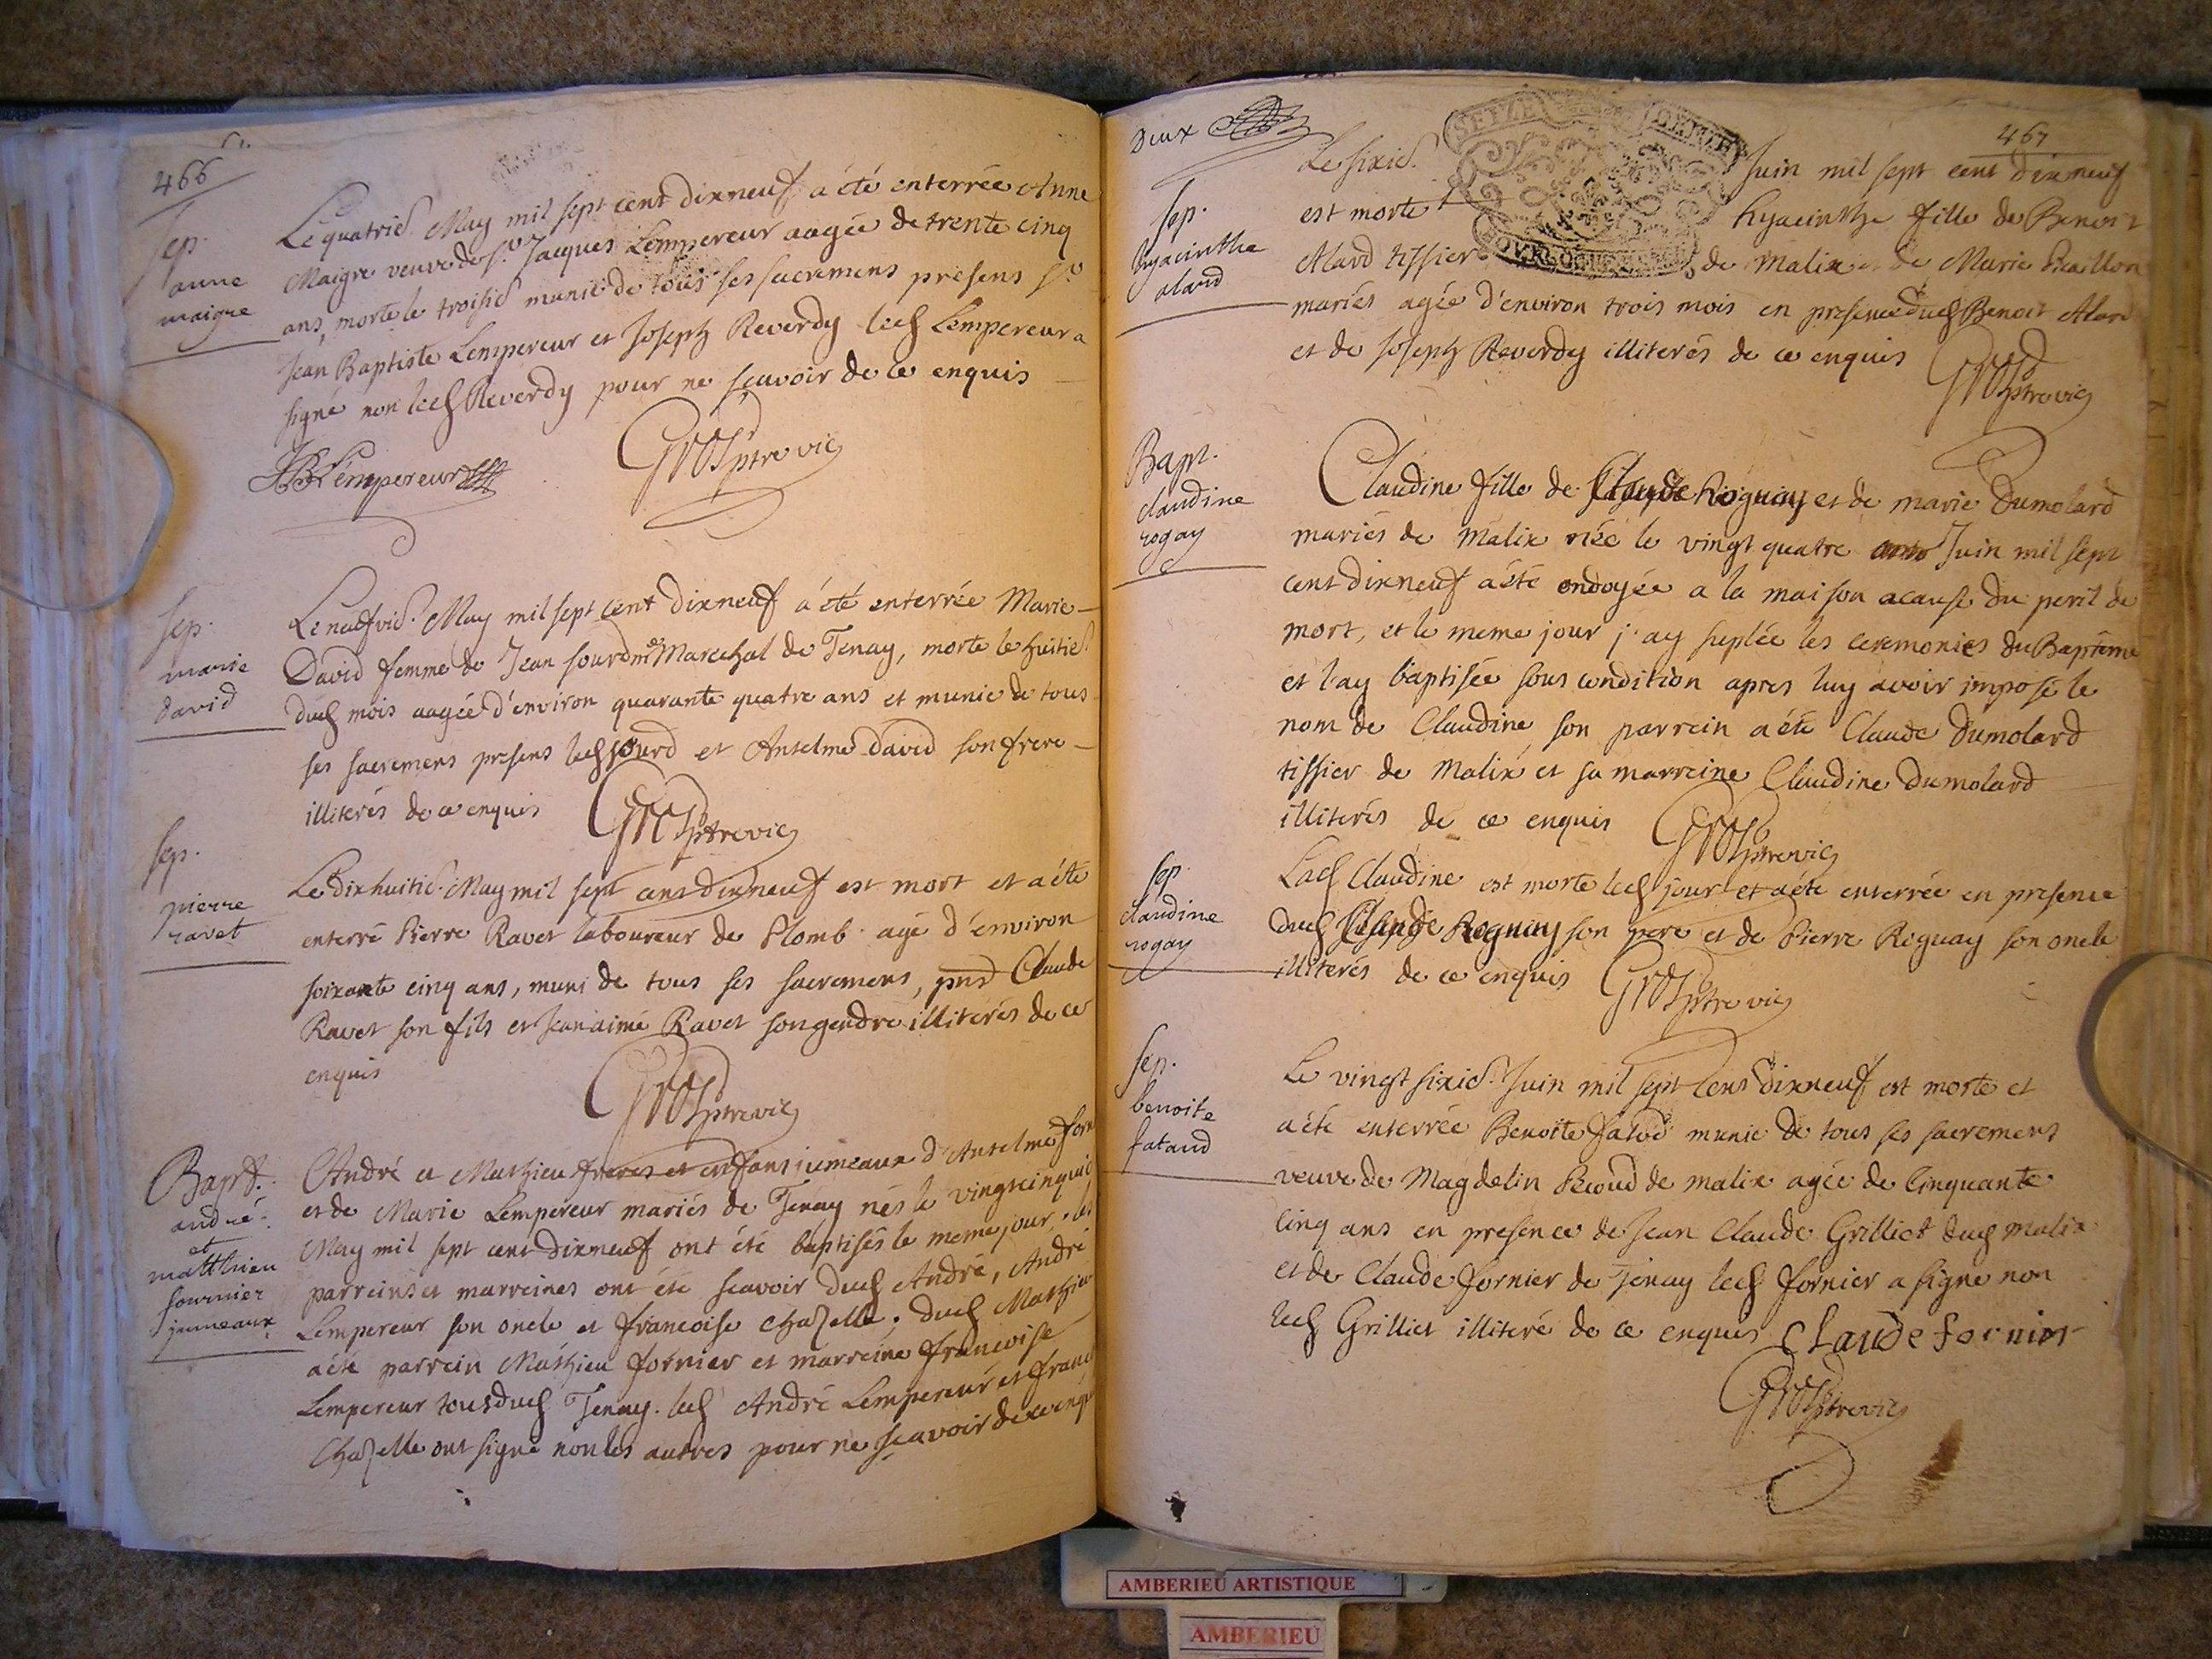 466
Sep.
anne
maigre
Le quatrie. May mil sept cent dixneuf a été enterrée Anne
Maigre veuve de Sr. Jacques Lempereur aagée de trente cinq
ans, morte le troisie munie de tous ses sacremens presens Sr.
Jean Baptiste Lempereur et Joseph Reverdy led Lempereur a
signé non led Reverdy pour ne scavoir de ce enquis
JB Lémpereur
Gros ptre vic
Sep.
marie
david
Le neufvie. May mil sept cent dixneuf a été enterrée Marie
David femme de Jean sourd me Marechal de Tenay, morte le huitie
dud mois aagée d'environ quarante quatre ans et munie de tous
ses sacremens presens led sourd et Anselme David son frere
illiterés de ce enquis
Gros ptre vic
Sep.
pierre
ravet
Le dixhuitie. May mil sept cent dixneuf est mort et a été
enterré Pierre Ravet laboureur de Plomb. agé d'environ
soixante cinq ans, muni de tous ses sacremens, pnd Claude
Ravet son fils et Jean aimé Ravet son gendre illiterés de ce
enquis
Gros ptre vic
Bapt.
andré
et
matthieu
fournier
jumeaux
André et Mathieu freres et enfans jumeaux d'Anselme forn
et de Marie Lempereur mariés de Tenay nés le vingtcinquie
May mil sept cent dixneuf ont été baptisés le meme jour, les
parreins et marreines ont été scavoir dud André, André
Lempereur son oncle et francoise Chazelle. dud Mathieu
a été parrein Mathieu fornier et marreine francoise
Lempereur tous dud Tenay. led André Lempereur et franc
Chazelle ont signé non les autres pour ne scavoir de ce enqu
Deux
SEIZE
DENIER
467
Sep.
hyacinthe
alard
Le sixie. Juin mil sept cent dixneuf
est morte hyacinthe fille de Benoit
Alard tissier de Malix et de Marie
mariés agée d'environ trois mois en presence dud Benoit Alard
et de Joseph Reverdy illiterés de ce enquis
Gros ptre vic
Bapt.
claudine
rogay
Claudine fille de Claude Roguay et de marie Dumolard
mariés de Malix née le vingt quatre Juin mil sept
cent dixneuf a été ondoyée a la maison a cause du peril de
mort, et le meme jour j'ay suplée les ceremonies du Baptême
et l'ay baptisée sous condition apres luy avoir imposé le
nom de Claudine, son parrein a été Claude Dumolard
tissier de Malix et sa marreine Claudine Dumolard
illiterés de ce enquis
Gros ptre vic
Sep.
claudine
rogay
Lad Claudine est morte led jour et a été enterrée en presence
dud Claude Roguay son pere et de Pierre Roguay son oncle
illiterés de ce enquis
Gros ptre vic
Sep.
benoite
fataud
Le vingt sixie. Juin mil sept cent dixneuf est morte et
a été enterrée Benoite munie de tous ses sacremens
veuve de Magdelin de malix agée de Cinquante
Cinq ans en presence de Jean Claude Grilliet dud Malix
et de Claude fornier de Tenay led fornier a signé non
led Grilliet illiteré de ce enquis Claude fornier
Gros ptre vic
AMBERIEU ARTISTIQUE
AMBERIEU